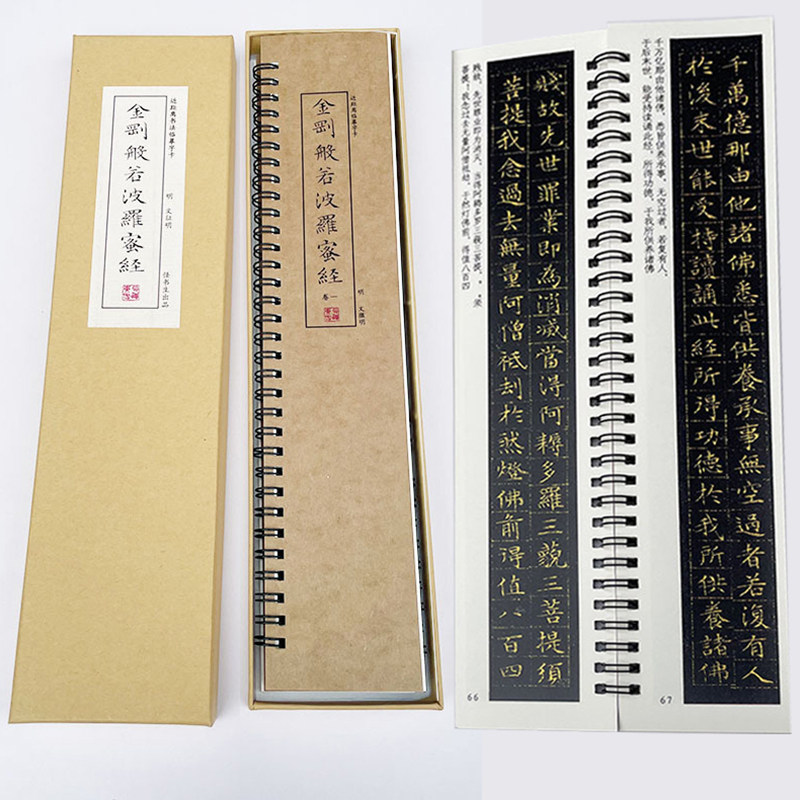 近距离书法临摹字卡
金剛般若波羅蜜経
明 文征明
佳书生出品
近距离书法临摹字卡
金剛般若波羅蜜経
卷一
明 文徵明
贱故,先世罪业即为消灭,当得阿耨多罗三藐三菩提。,须
菩提!我念过去无量阿僧祇劫,于然灯佛前,得值八百四
賤故先世罪業即為消滅當得阿耨多羅三藐三菩提須
菩提我念過去無量阿僧祇刧於然燈佛前得值八百四
66
千万亿那由他诸佛,悉皆供养承事,无空过者,若复有人,
于后末世,能受持读诵此经,所得功德,于我所供养诸佛
千萬億那由他諸佛悉皆供養承事無空過者若復有人
於後末世能受持讀誦此經所得功德於我所供養諸佛
67